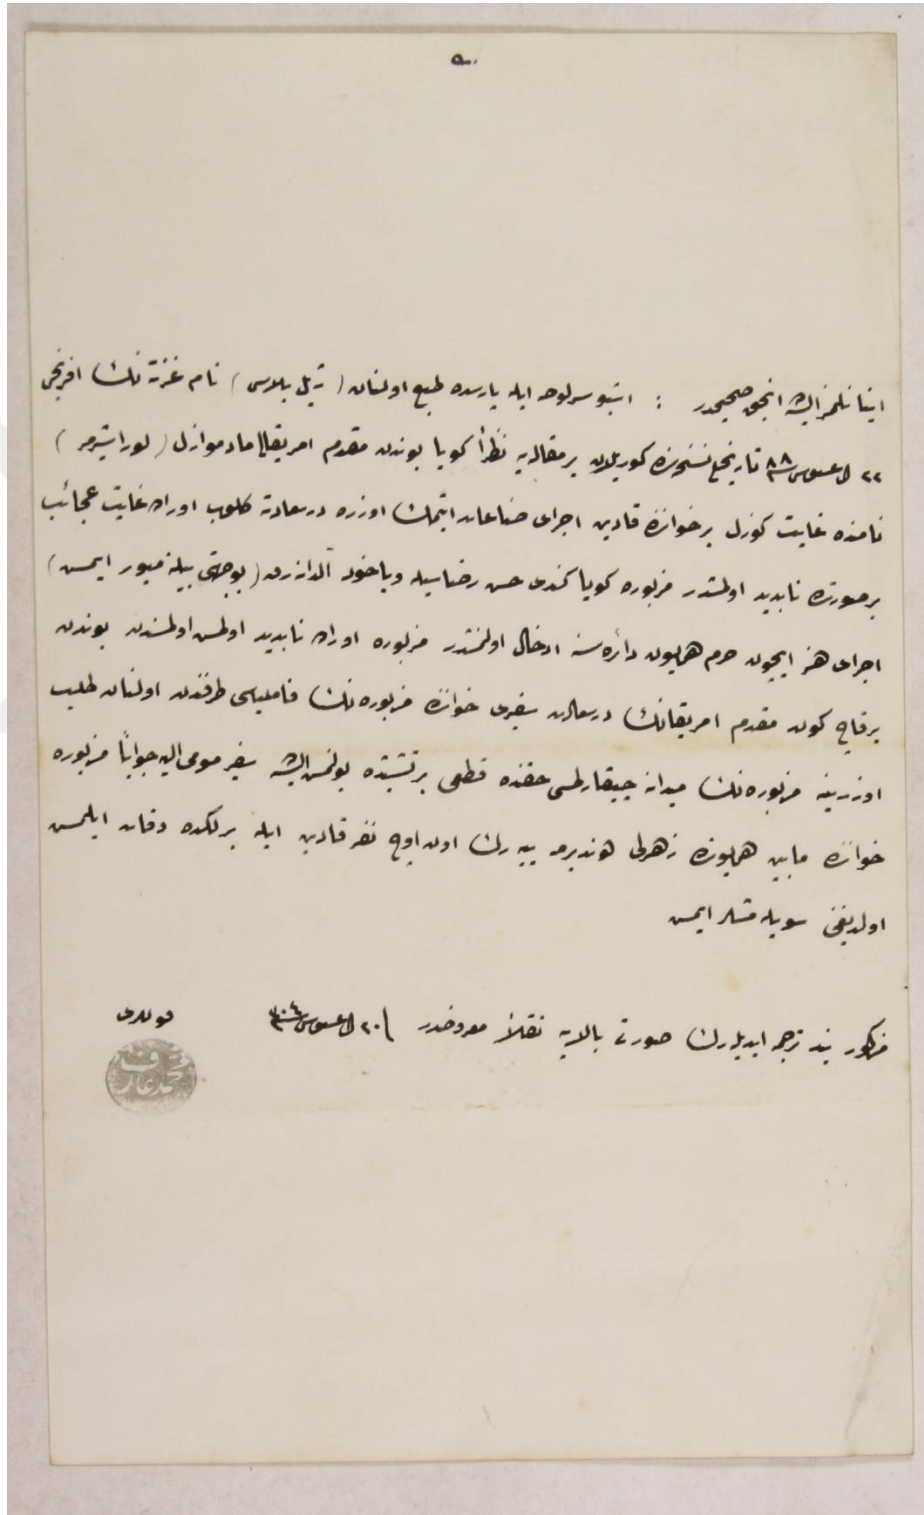 اینانلمز ایسه ده انجق صحیحدر : اشبو سرلوحه ایله پارسده طبع اولنان (پتی پاریسی) نام غزته نك افرنجی
٢٢ اغستوس ٨٨ تاریخلی نسخه سنده كوریلان بر مقاله یه نظراً كویا بوندن مقدم امریقالی مادموازل (لورا شیرمر)
نامنده غایت كوزل بر خواننده قادین اجرای صناعت ایتمك اوزره درسعادته كلوب اوراده غایت عجائب
بر صورتده ناپدید اولمشدر مزبوره كویا كندی حسن رضاسیله ویاخود آلدانه رق (بو جهتی بیله مییور ایمش)
اجرای هنر ایچون حرم همایون دائره سنه ادخال اولنمشدر مزبوره اوراده ناپدید اولمش اولمسندن بوندن
بر قاچ كون مقدم امریقانك درسعادت سفیری خواننده مزبوره نك فامیلیاسی طرفندن اولنان طلب
اوزرینه مزبوره نك میدانه چیقارلمسی حقنده قطعی بر تشبثده بولنمش ایسه ده سفیر مومی الیهه جواباً مزبوره
خواننده مابین همایونده زهرلی هوندیرمه ییه رك اون اوچ نفر قادین ایله برلكده وفات ایلمش
اولدیغی سویله مشلر ایمش
مذكور بند ترجمه ایدیله رك صورتی بالایه نقلاً معروضدر ٢٠ اغستوس ٣٠٤ قوللری
محمد عارف